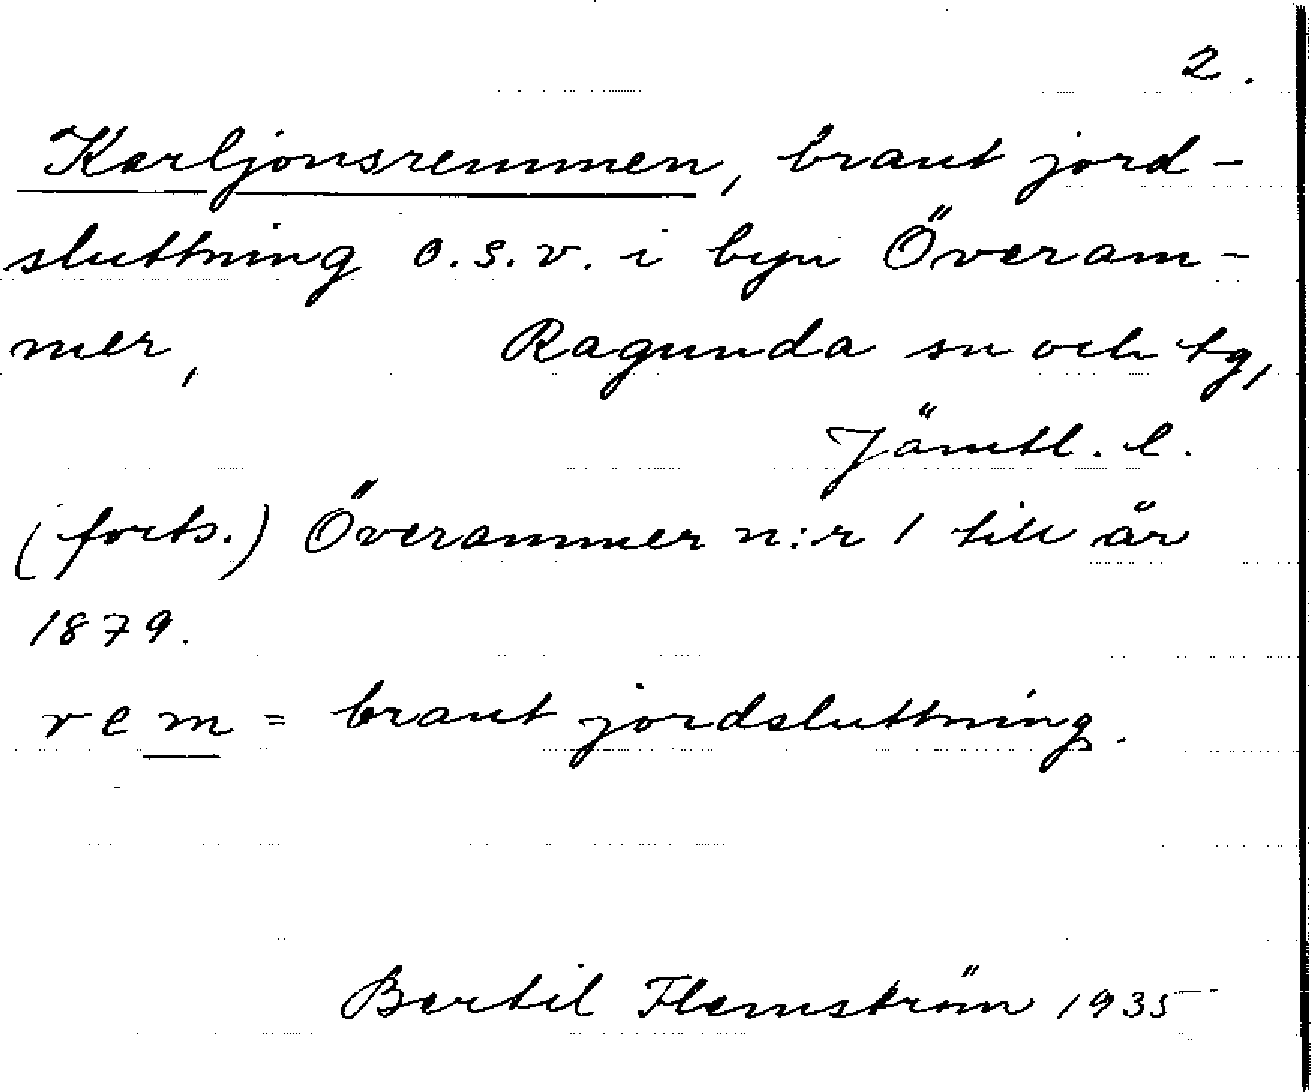 2.
Karljonsremmen, brant jord-
sluttning o.s.v. i byn Överam-
mer, Ragunda sn och tg,
Jämtl. l.
(forts.) Överammer n:r 1 till år
1879.
rem = brant jordsluttning.
Bertil Flemström 1935